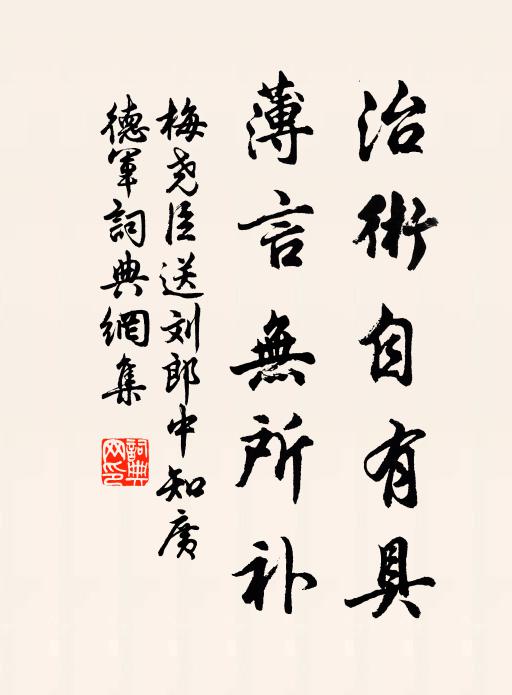 治術自有具
薄言無所补
梅尧臣送刘郎中知廣
德軍詞典網集
詞典网印